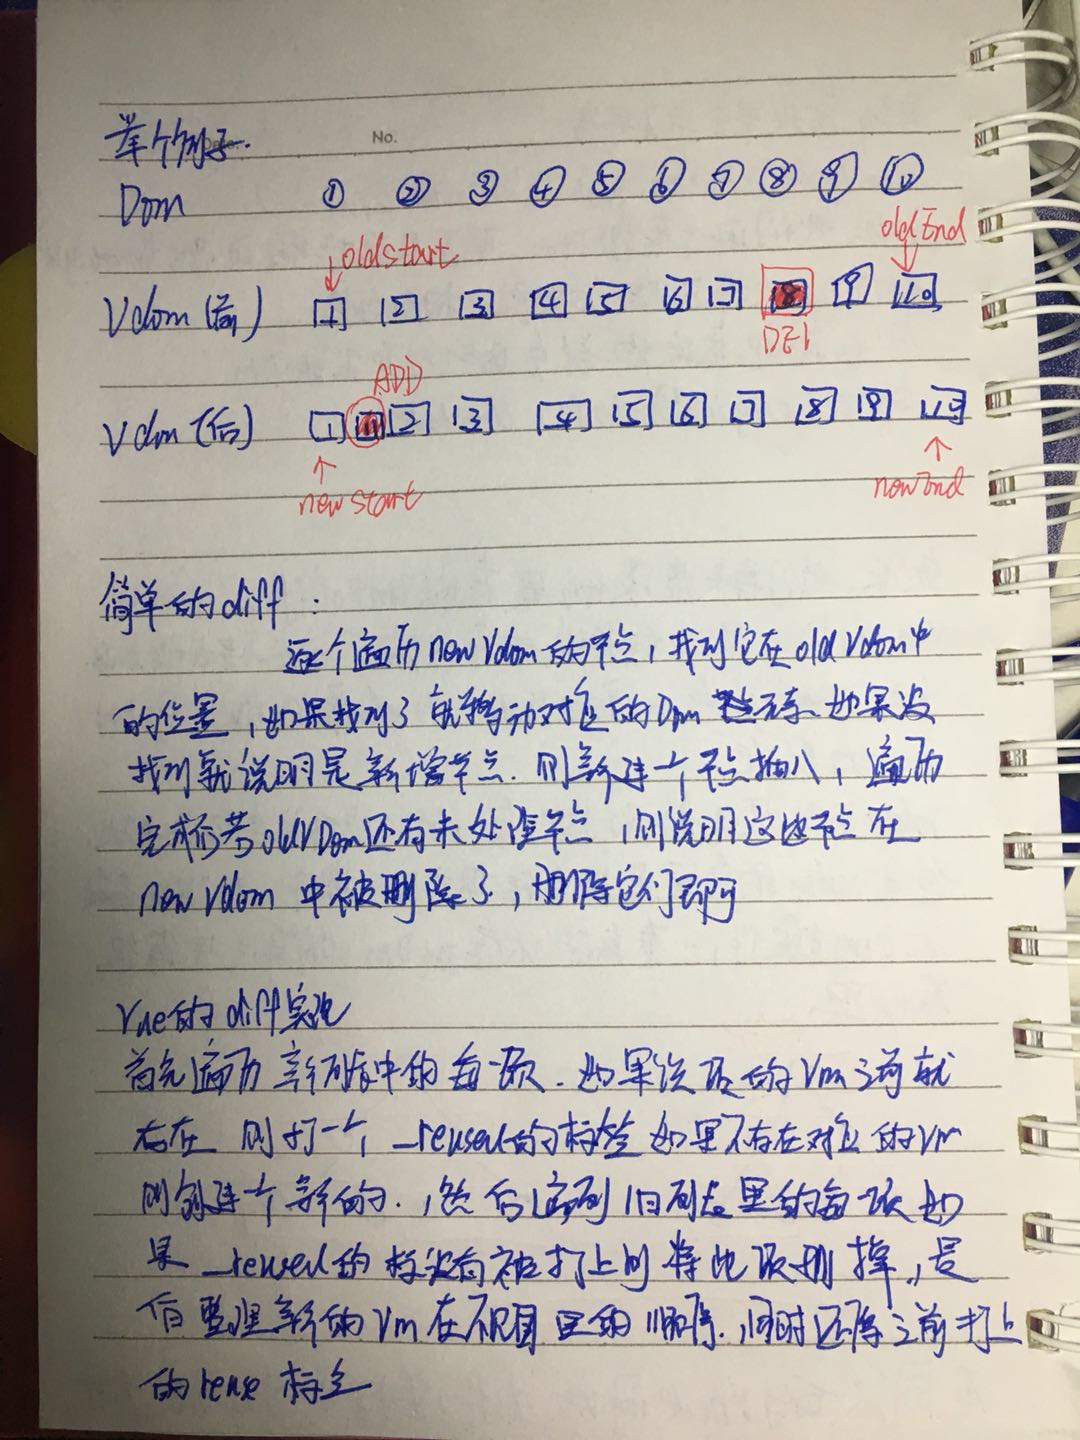 举个例子.
No.
Dom ① ② ③ ④ ⑤ ⑥ ⑦ ⑧ ⑨ ⑩
oldstart oldEnd
Vdom (前) 1 2 3 4 5 6 7 8 9 10
DEl
ADD
Vdom (后) 1 11 2 3 4 5 6 7 8 9 10
newstart newEnd
简单的diff :
逐个遍历newVdom的节点,找到它在oldVdom中
的位置,如果找到了就移动对应的Dom元素.如果没
找到就说明是新增节点.则新建一个节点插入,遍历
完后若oldVDom还有未处理节点,则说明这些节点在
newVdom 中被删除了,删除它们即可
Vue的diff实现
首先遍历新列表中的每一项.如果该项的Vm之前就
存在 则打一个 _reused的标签 如果不存在对应的Vm
则创建一个新的.,然后遍历旧列表里的每一项如
果 _reused的标没有被打上则将此项删掉,最
后整理新的Vm在视图里的顺序.,同时还原之前打上
的reuse标签